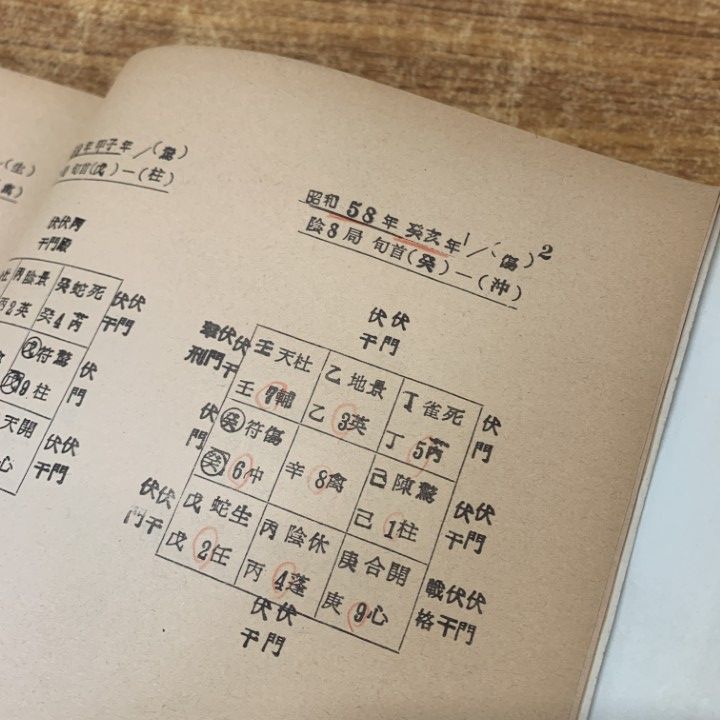 年甲子年／(鶩)
旬首(戊)一(柱)
伏伏丙
干門殿
丙陰景
癸蛇死
丙2英
癸4芮
伏伏
干門
符驚
9柱
伏
門
天開
心
伏伏
干門
昭和 58 年 癸亥年／(傷)2
陰8局 旬首(癸)一(沖)
伏伏
干門
伏伏
刑門干
壬天杜
乙地景
丁雀死
伏
門
壬 7輔
乙 3英
丁 5芮
伏
門
癸符傷
己陳驚
癸 6冲
辛 8禽
己 1柱
伏伏
干門
伏伏
門干
戊蛇生
丙陰休
庚合開
戰伏伏
格干門
戊 2任
丙 4蓬
庚 9心
伏伏
干門